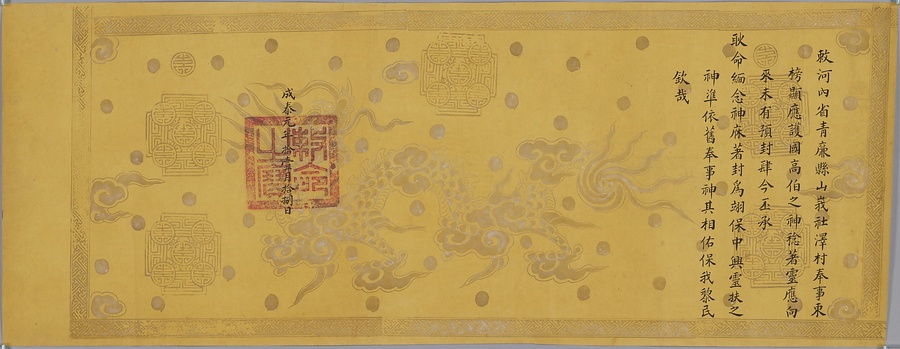 敕河內省青廉縣山峩社澤村奉事東
榜顯應護國高伯之神稔著靈應向
來未有預封肆今丕承
耿命緬念神庥著封爲翊保中興靈扶之
神準依舊奉事神其相佑保我黎民
欽哉
成泰元年拾壹月拾捌日